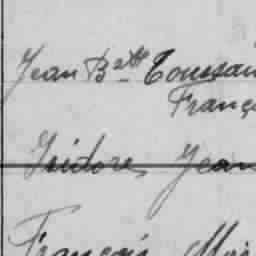 Jean Btte Toussai
Franç
Isidore Jean
François